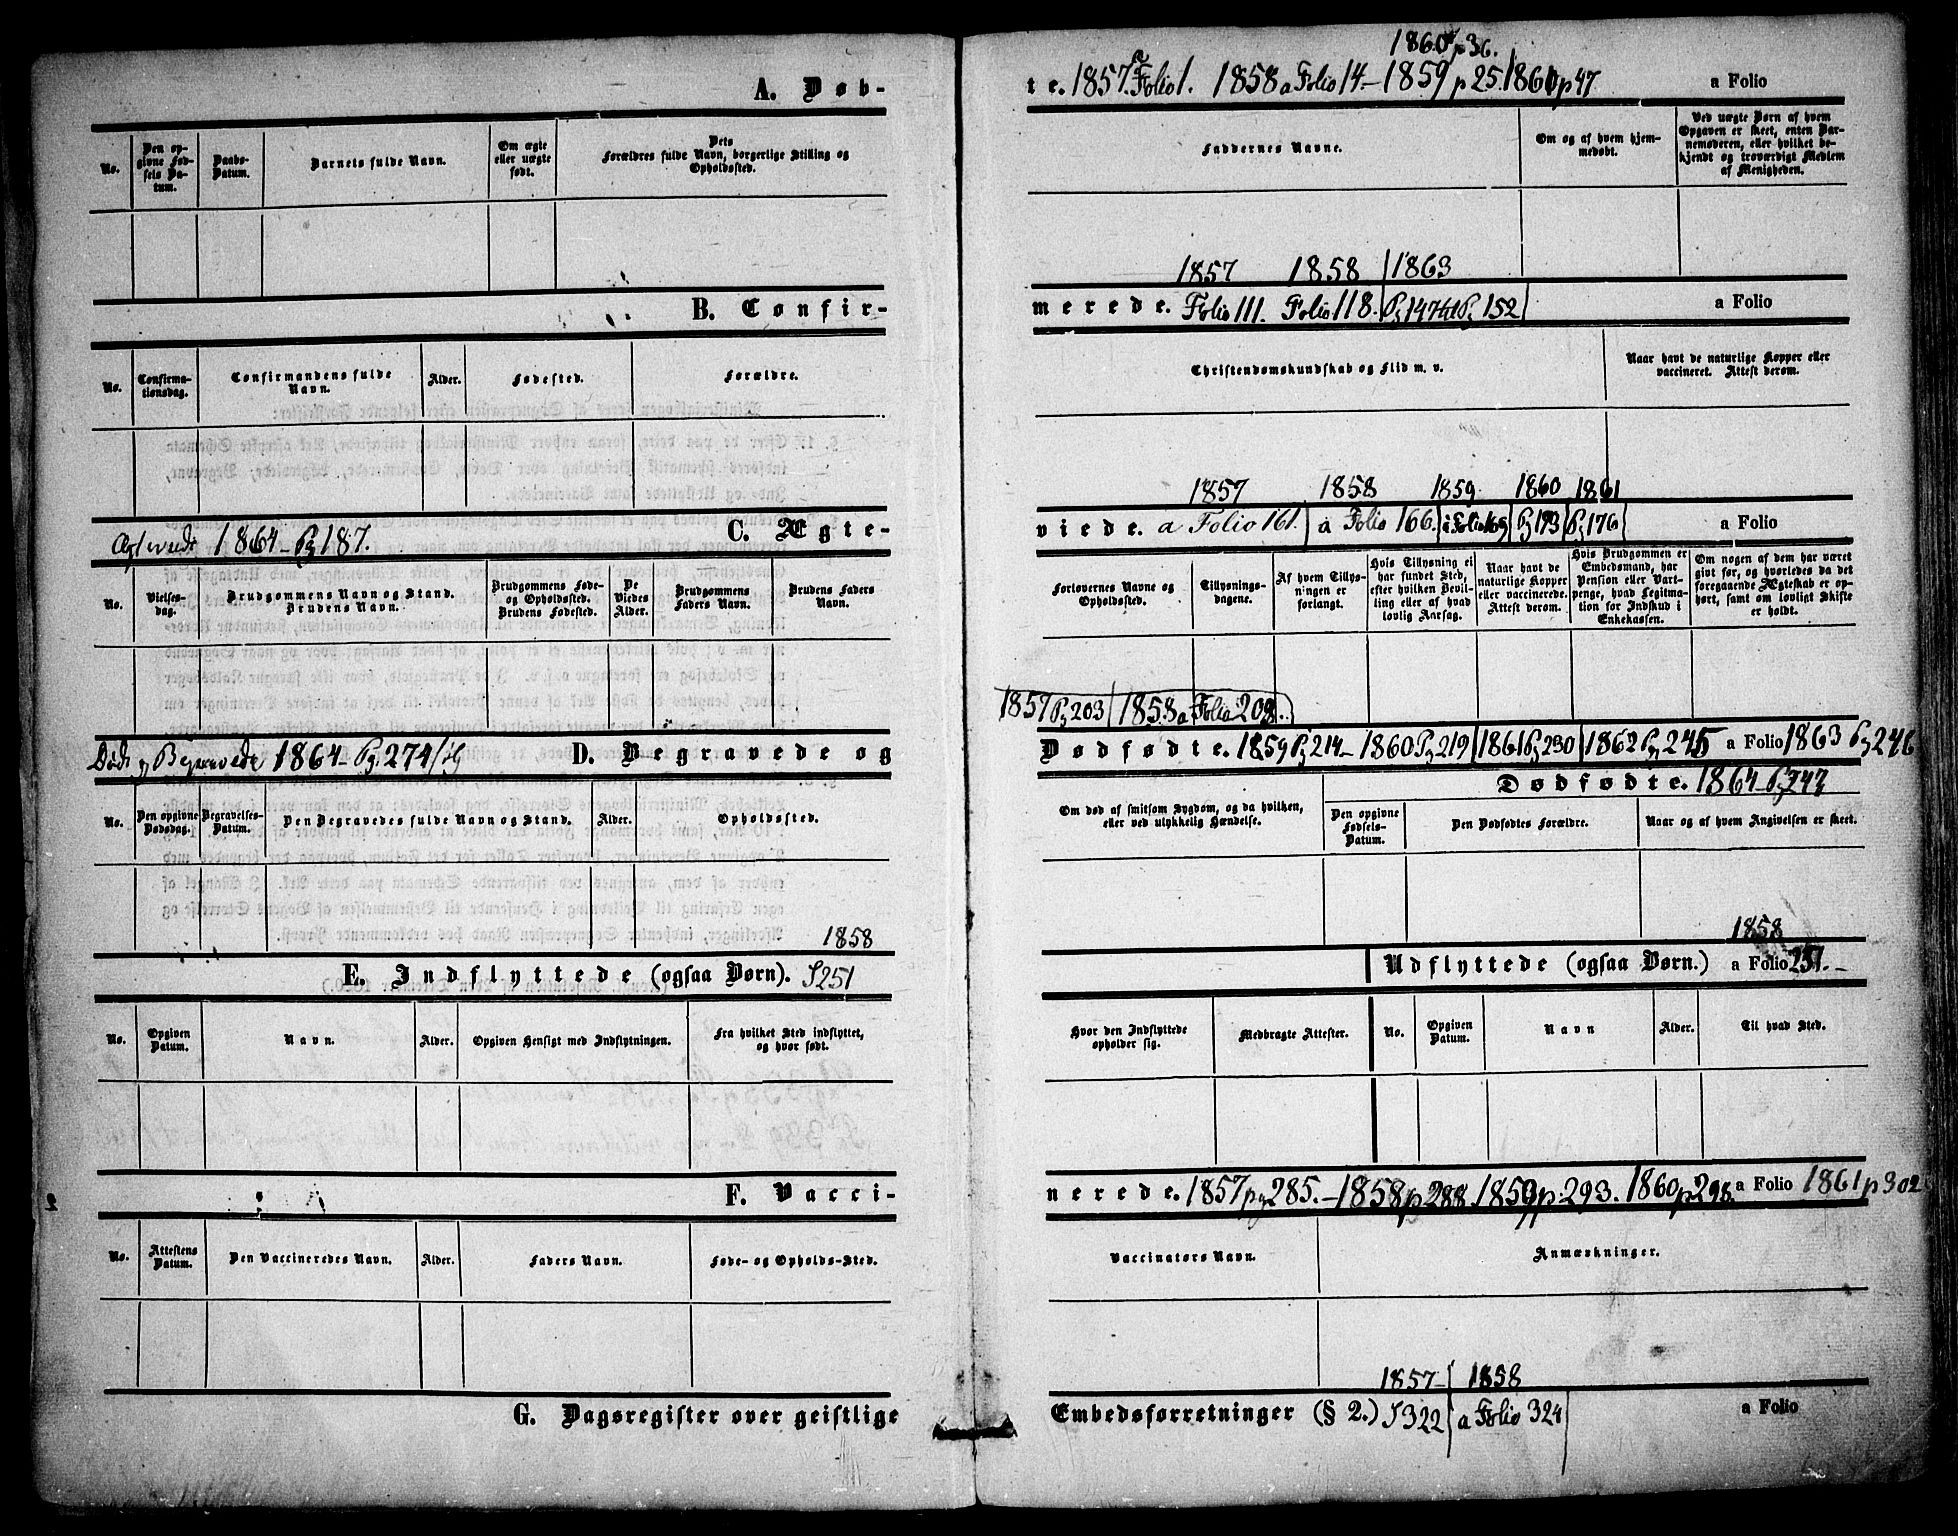 1860 p36.
A. Døb- te. 1857. a Folio 1. 1858 a Folio 14 - 1859 p 25. 1861 p 47 a Folio
No. | Den opgivne Fødsels Datum. | Daabs-Datum. | Barnets fulde Navn. | Om ægte eller uægte født. | Dets Forældres fulde Navn, borgerlige Stilling og Opholdssted. | Faddernes Navne. | Om og af hvem hjemmedøbt. | Ved uægte Børn af hvem Opgaven er skeet, enten Barnemoderen, eller hvilket bekjendt og troværdigt Medlem af Menigheden.
1857 1858 1863
B. Confir- merede. Folio 111. Folio 118. Pg 147 til Pg 152 a Folio
No. | Confirmationsdag. | Confirmandens fulde Navn. | Alder. | Fødested. | Forældre. | Christendomskundskab og Flid m. v. | Naar havt de naturlige Kopper eller vaccineret. Attest derom.
1857 1858 1859 1860 1861
C. Ægte- viede. a Folio 161. a Folio 166. a Folio 169 Pg 173 Pg 176 a Folio
Ægteviede 1864 - Pg 187.
No. | Vielsesdag. | Brudgommens Navn og Stand. Brudens Navn. | Brudgommens Føde- og Opholdssted. Brudens Fødested. | De Viedes Alder. | Brudgommens Faders Navn. | Brudens Faders Navn. | Forlovernes Navne og Opholdssted. | Tillysningsdagene. | Af hvem Tillysningen er forlangt. | Hvis Tillysning ei har fundet Sted, efter hvilken Bevilling eller af hvad lovlig Aarsag. | Naar havt de naturlige Kopper eller vaccinerede. Attest derom. | Hvis Brudgommen er Embedsmand, har Pension eller Vartpenge, hvad Legitimation for Indskud i Enkekassen. | Om nogen af dem har været givt før, og hvorledes da det foregaaende Ægteskab er ophørt, samt om lovligt Skifte er holdt.
1857 Pg 203 1858 a Folio 208.
Døde og Begravede 1864 - Pg. 274 D. Begravede og Dødfødte. 1859 Pg 214 - 1860 Pg 219 1861 Pg 230 1862 Pg 245 a Folio 1863 Pg 246
Dødfødte. 1864 - Pg 247
No. | Den opgivne Dødsdag. | Begravelses-Datum. | Den Begravedes fulde Navn og Stand. | Alder. | Opholdssted. | Om død af smitsom Sygdom, og da hvilken, eller ved ulykkelig Hændelse. | Den opgivne Fødsels-Datum. | Den Dødfødtes Forældre. | Naar og af hvem Angivelsen er skeet.
1858 1858
E. Indflyttede (ogsaa Børn). S 251 Udflyttede (ogsaa Børn.) a Folio 257.
No. | Opgiven Datum. | Navn. | Alder. | Opgiven Hensigt med Indflytningen. | Fra hvilket Sted indflyttet, og hvor født. | Hvor den Indflyttede opholder sig. | Medbragte Attester. | No. | Opgiven Datum. | Navn | Alder. | Til hvad Sted.
F. Vacci- nerede. 1857 pg 285. - 1858 p 288. 1859 p. 293. 1860 p 298. a Folio 1861 p 302
No. | Attestens Datum. | Den Vaccineredes Navn. | Alder. | Faders Navn. | Føde- og Opholds-Sted. | Vaccinators Navn. | Anmærkninger.
1857 - 1858
G. Dagsregister over geistlige Embedsforretninger (§ 2.) S 322 a Folio 324 a Folio